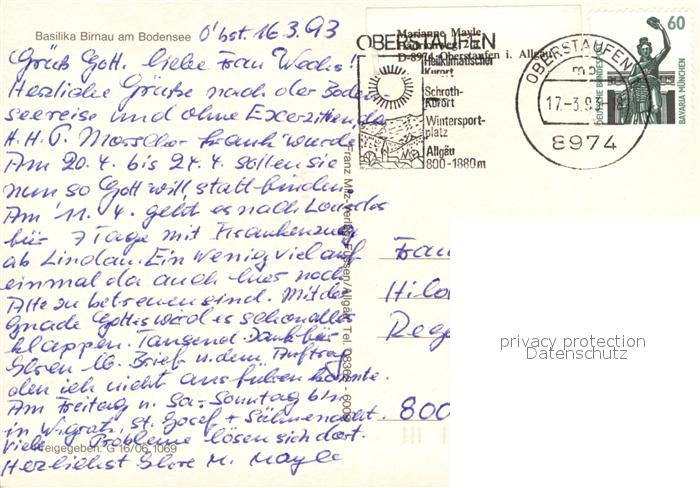 Basilika Birnau am Bodensee
O'bst. 16.3.93
Grüß Gott. liebe Frau Wechs!
Herzliche Grüße nach der Boden-
seereise und ohne Exerzitien da
H.H.P. krank wurde
Am 20.4. bis 24.4. sollen sie
nun so Gott will stattfinden
Am 11.4. geht es nach Lourdes
für 7 Tage mit
ab Lindau. Ein wenig viel auf
einmal da auch hier noch
Alte zu betreuen sind. Mit der
Gnade Gottes wird es schon alles
klappen. Tausend Dank für
Ihren lb. Brief u. dem Auftrag
den ich nicht ausführen konnte.
Am Freitag u. Sa-Sonntag bin
in Wigratz. St. Josef + Sühnenacht.
Viele Probleme lösen sich dort.
Herzlichst Ihre M. Mayle
Freigegeben: G 16/06 1069
Franz Milz-Verlag Füssen/Allgäu Tel. 0836
Marianne Mayle
D-8974 Oberstaufen i. Allgäu
OBERSTAUFEN
Heilklimatischer
Kurort
Schroth-
Kurort
Wintersport-
platz
Allgäu
800-1880m
OBERSTAUFEN
mb
17.-3.93-18
8974
60
DEUTSCHE BUNDESPOST
BAVARIA MÜNCHEN
Frau
Hild
Rege
800
privacy protection
Datenschutz